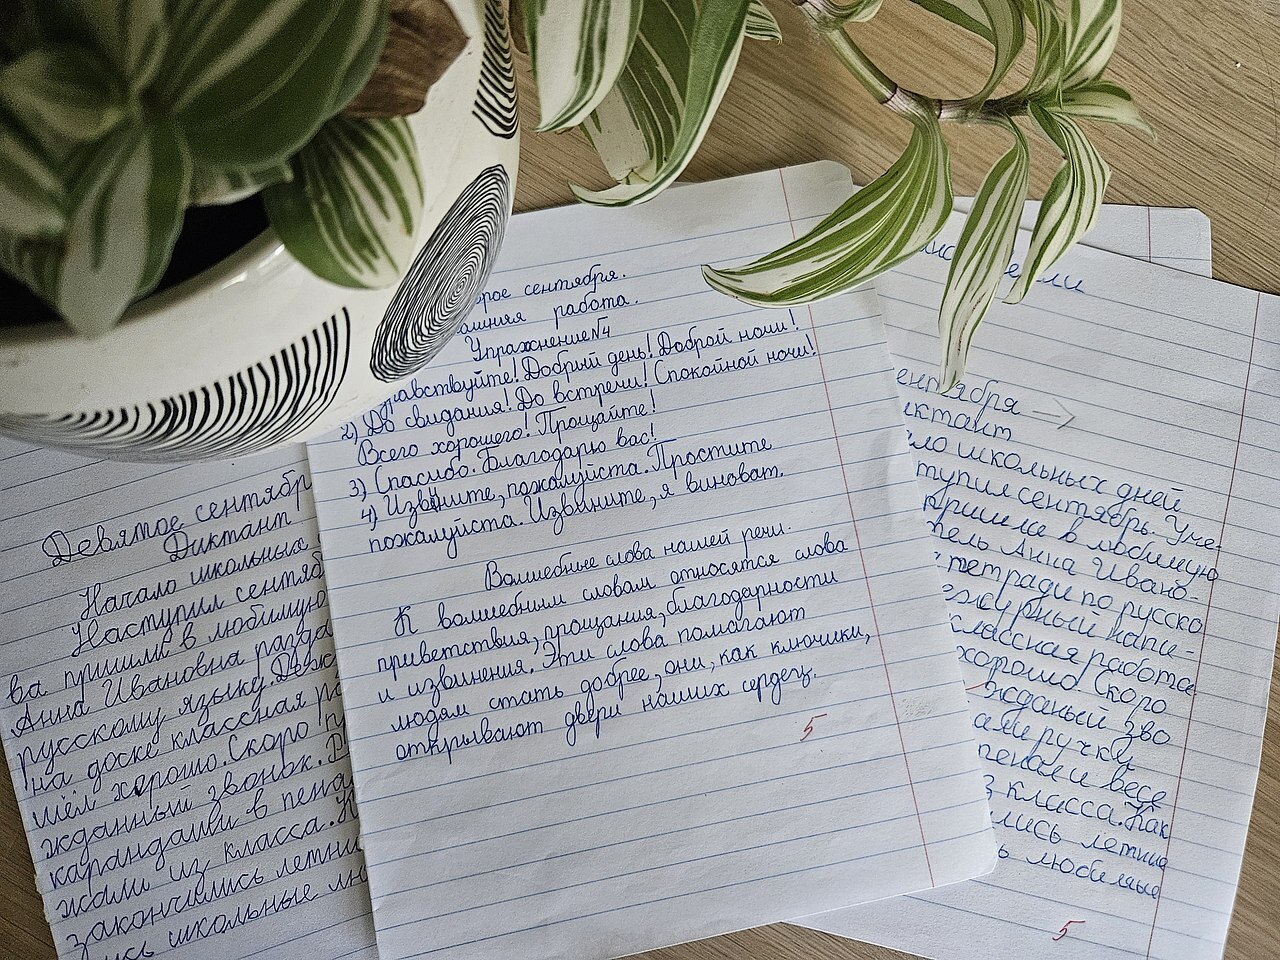 сентября.
работа.
Упражнение №4
Добрый день! Доброй ночи!
2) До свидания! До встречи! Спокойной ночи!
Всего хорошего! Прощайте!
3) Спасибо. Благодарю вас!
4) Извините, пожалуйста. Простите
пожалуйста. Извините, я виноват.
Волшебные слова нашей речи.
К волшебным словам относятся слова
приветствия, прощания, благодарности
и извинения. Эти слова помогают
людям стать добрее, они, как ключики,
открывают двери наших сердец.
5
Девятое сентябр
Диктант
Начало школьных
Наступил сентяб
ва пришли в любимую
Анна Ивановна разда
русскому языку. Деж
на доске классная
шёл хорошо. Скоро
жданный звонок.
карандаши в пена
жали из класса.
закончились летни
ись школьные
ентября
иктант
ло школьных дней
тупил сентябрь. Уче-
пришли в любимую
тель Анна Ивано-
тетради по русско
ежурный напи-
классная работа
хорошо. Скоро
жданый зво
ами ручку
пенал и весе
з класса. Как
лись летние
ь любимые
5